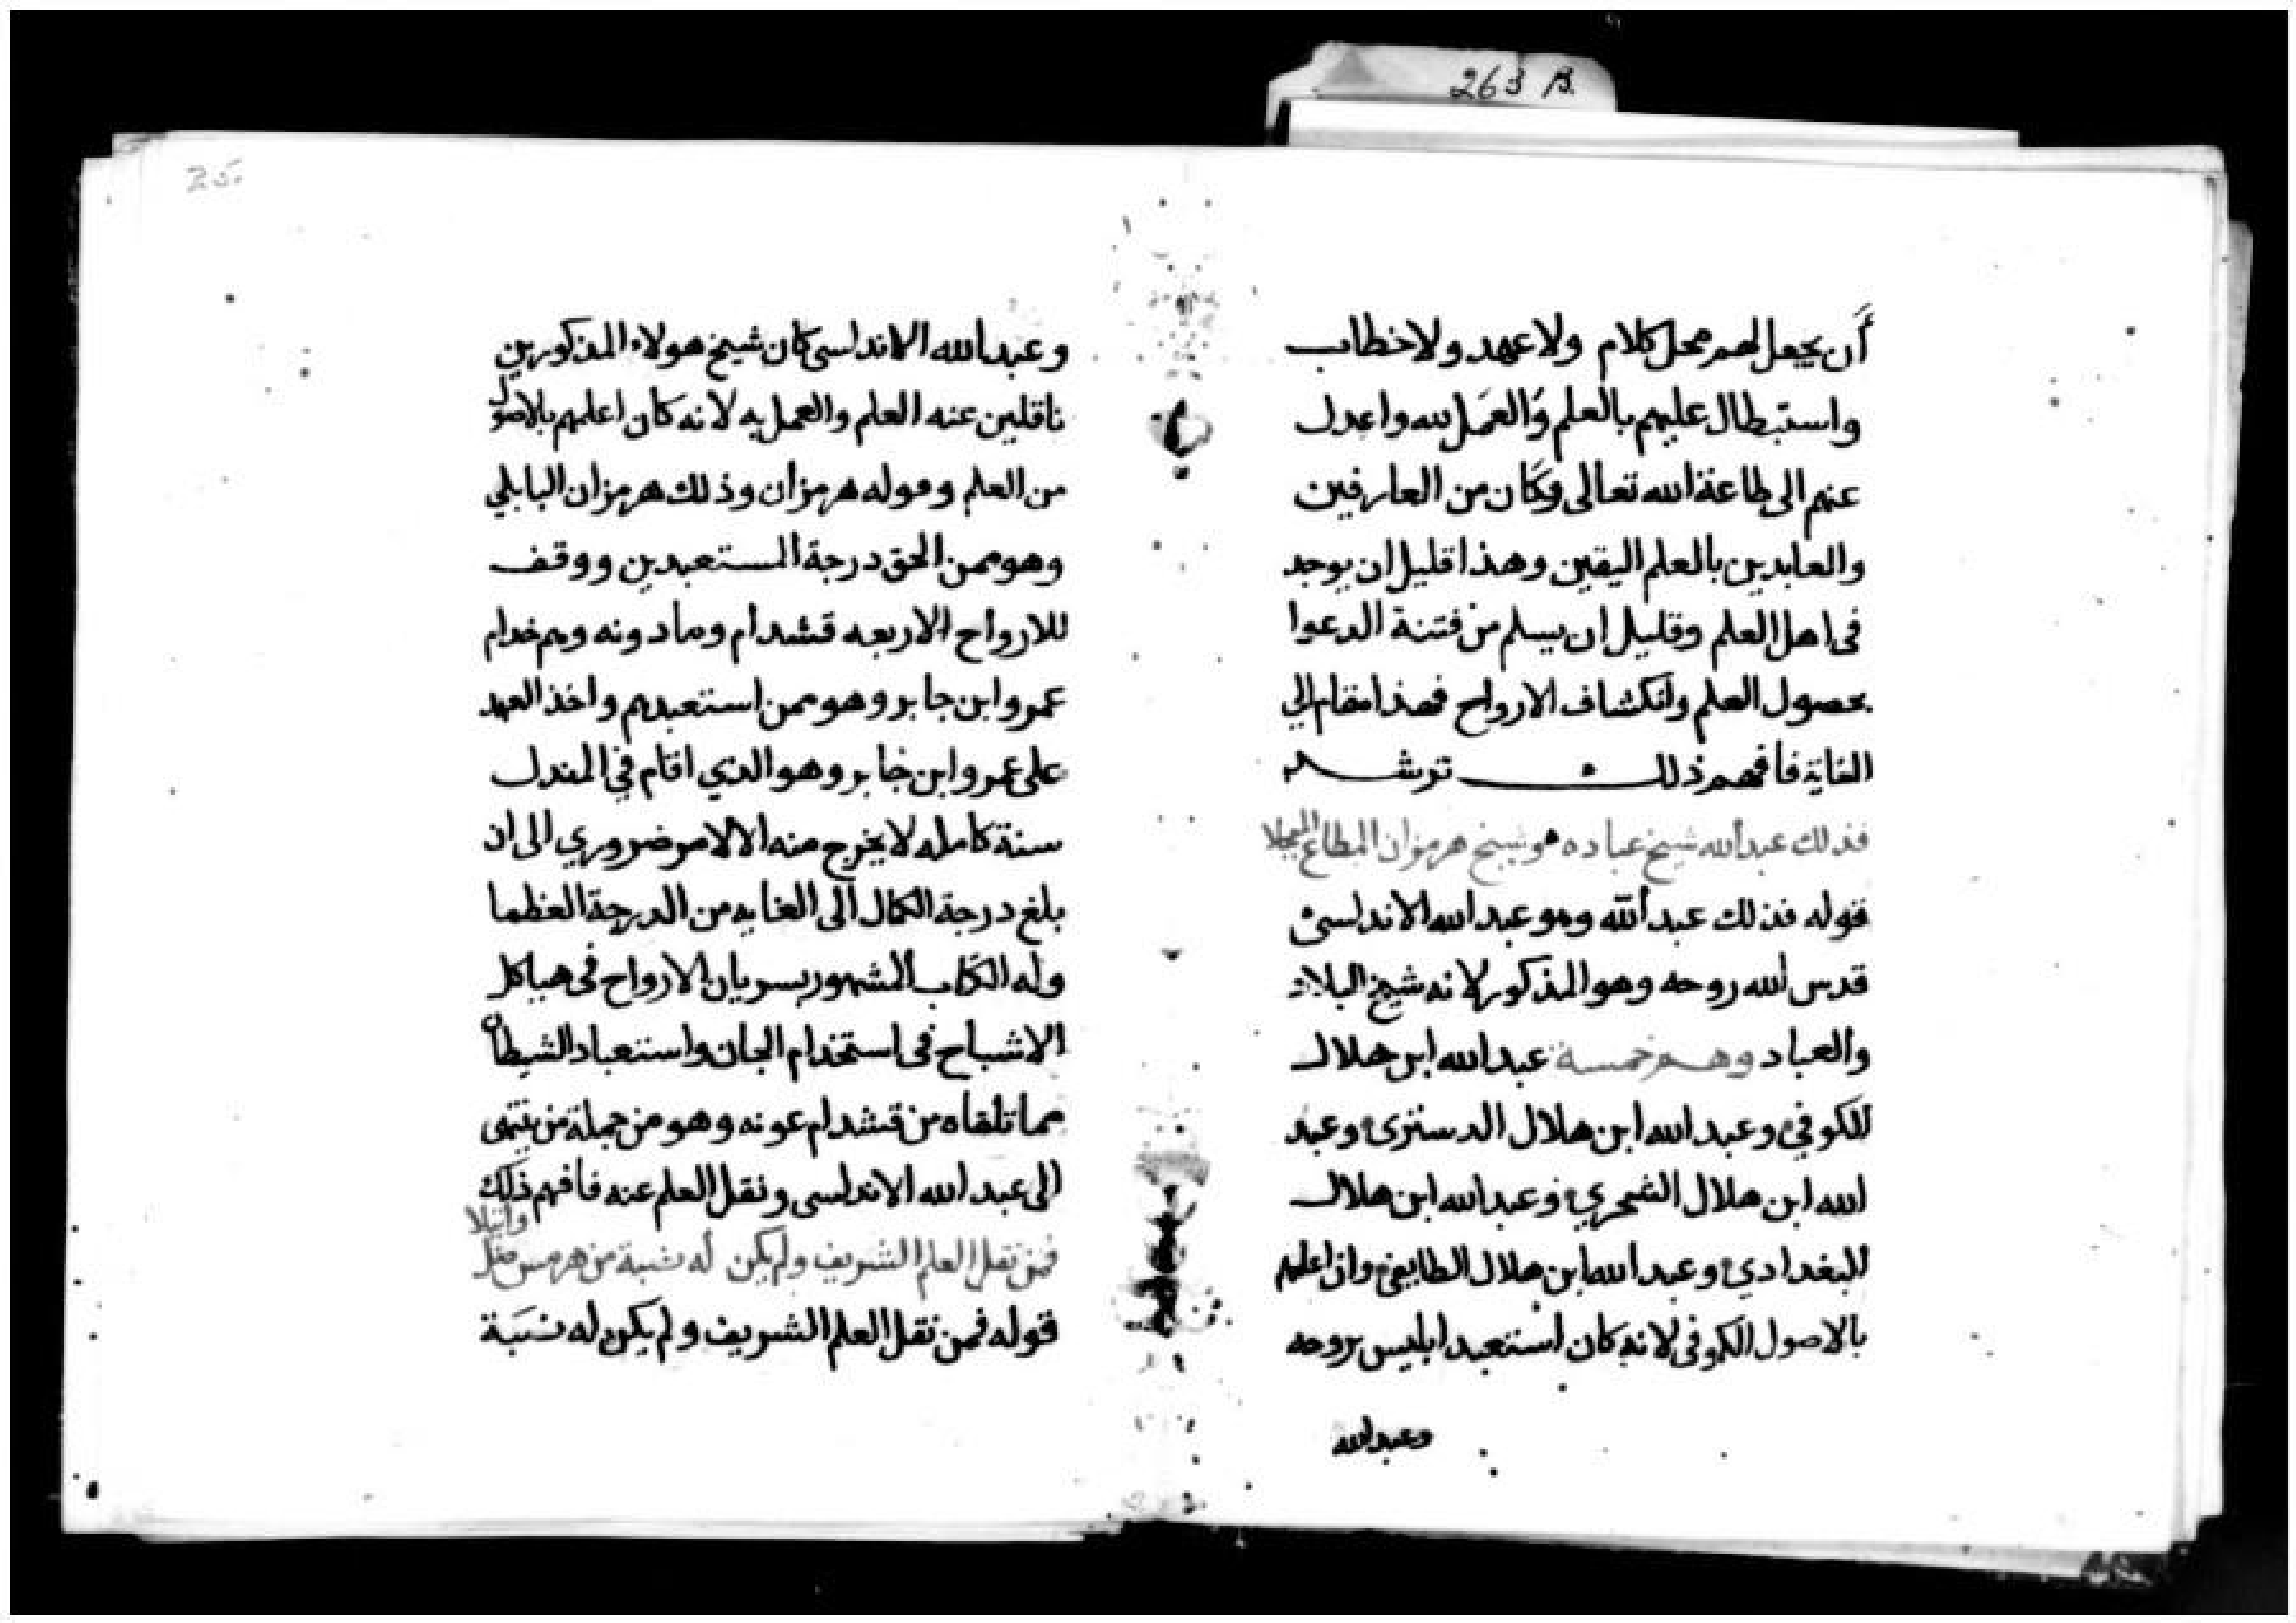 263 B.
أن يجعل لهم محل كلام ولا عهد ولا خطاب
واستبطال عليهم بالعلم والعمل لله واعدل
عنهم الى طاعة الله تعالى وكان من العارفين
والعابدين بالعلم اليقين وهذا قليل ان يوجد
فى اهل العلم وقليل ان يسلم من فتنة الدعوا
بحصول العلم وانكشاف الارواح فهذا مقام الي
الغاية فافهم ذلك ترشد
فذلك عبدالله شيخ عباده وشيخ هرمزان المطاع
قوله فذلك عبد الله وهو عبد الله الاندلسى
قدس الله روحه وهو المذكور لانه شيخ البلاد
والعباد وهم خمسة عبد الله ابن هلال
الكوفي وعبد الله ابن هلال الدستزى وعبد
الله ابن هلال الشحري وعبد الله ابن هلال
البغدادي وعبد الله ابن هلال الطايفى وان اعلمهم
بالاصول الكوفى لانه كان استعبد ابليس بروحه
وعبد الله
25.
وعبد الله الاندلسى كان شيخ هولاء المذكورين
ناقلين عنه العلم والعمل به لانه كان اعلمهم بالاصول
من العلم وقوله هرمزان وذلك هرمزان البابلي
وهو ممن الحق درجة المستعبدين ووقف
للارواح الاربعه قشدام ومادونه وهم خدام
عمرو ابن جابر وهو ممن استعبدهم واخذ العهد
على عمرو ابن خابر وهو الذي اقام في المندل
سنة كامله لا يخرج منه الا لامر ضروري الى ان
بلغ درجة الكمال الى الغايه من الدرجة العظما
وله الكتاب المشهور بسريان الارواح فى هياكل
الاشباح فى استخدام الجان واستعباد الشيطان
مما تلقاه من قشدام عونه وهو من جملة من ينتمى
الى عبد الله الاندلسى ونقل العلم عنه فافهم ذلك
فمن نقل العلم الشريف ولم يكن له نسبة من هرمس
قوله فمن نقل العلم الشريف ولم يكن له نسبة